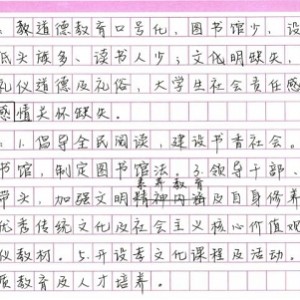 ：教道德教育口号化，图书馆少，设
低头族多、读书人少；文化明缺失，
礼仪道德及礼俗，大学生社会责任感
感情关怀缺失。
：1.倡导全民阅读，建设书香社会。
书馆，制定图书馆法。3.领导干部、
素养教育
带头，加强文明精神内涵及自身修养
优秀传统文化及社会主义核心价值观
仪教材。5.开设孝文化课程及活动。
质教育及人才培养。